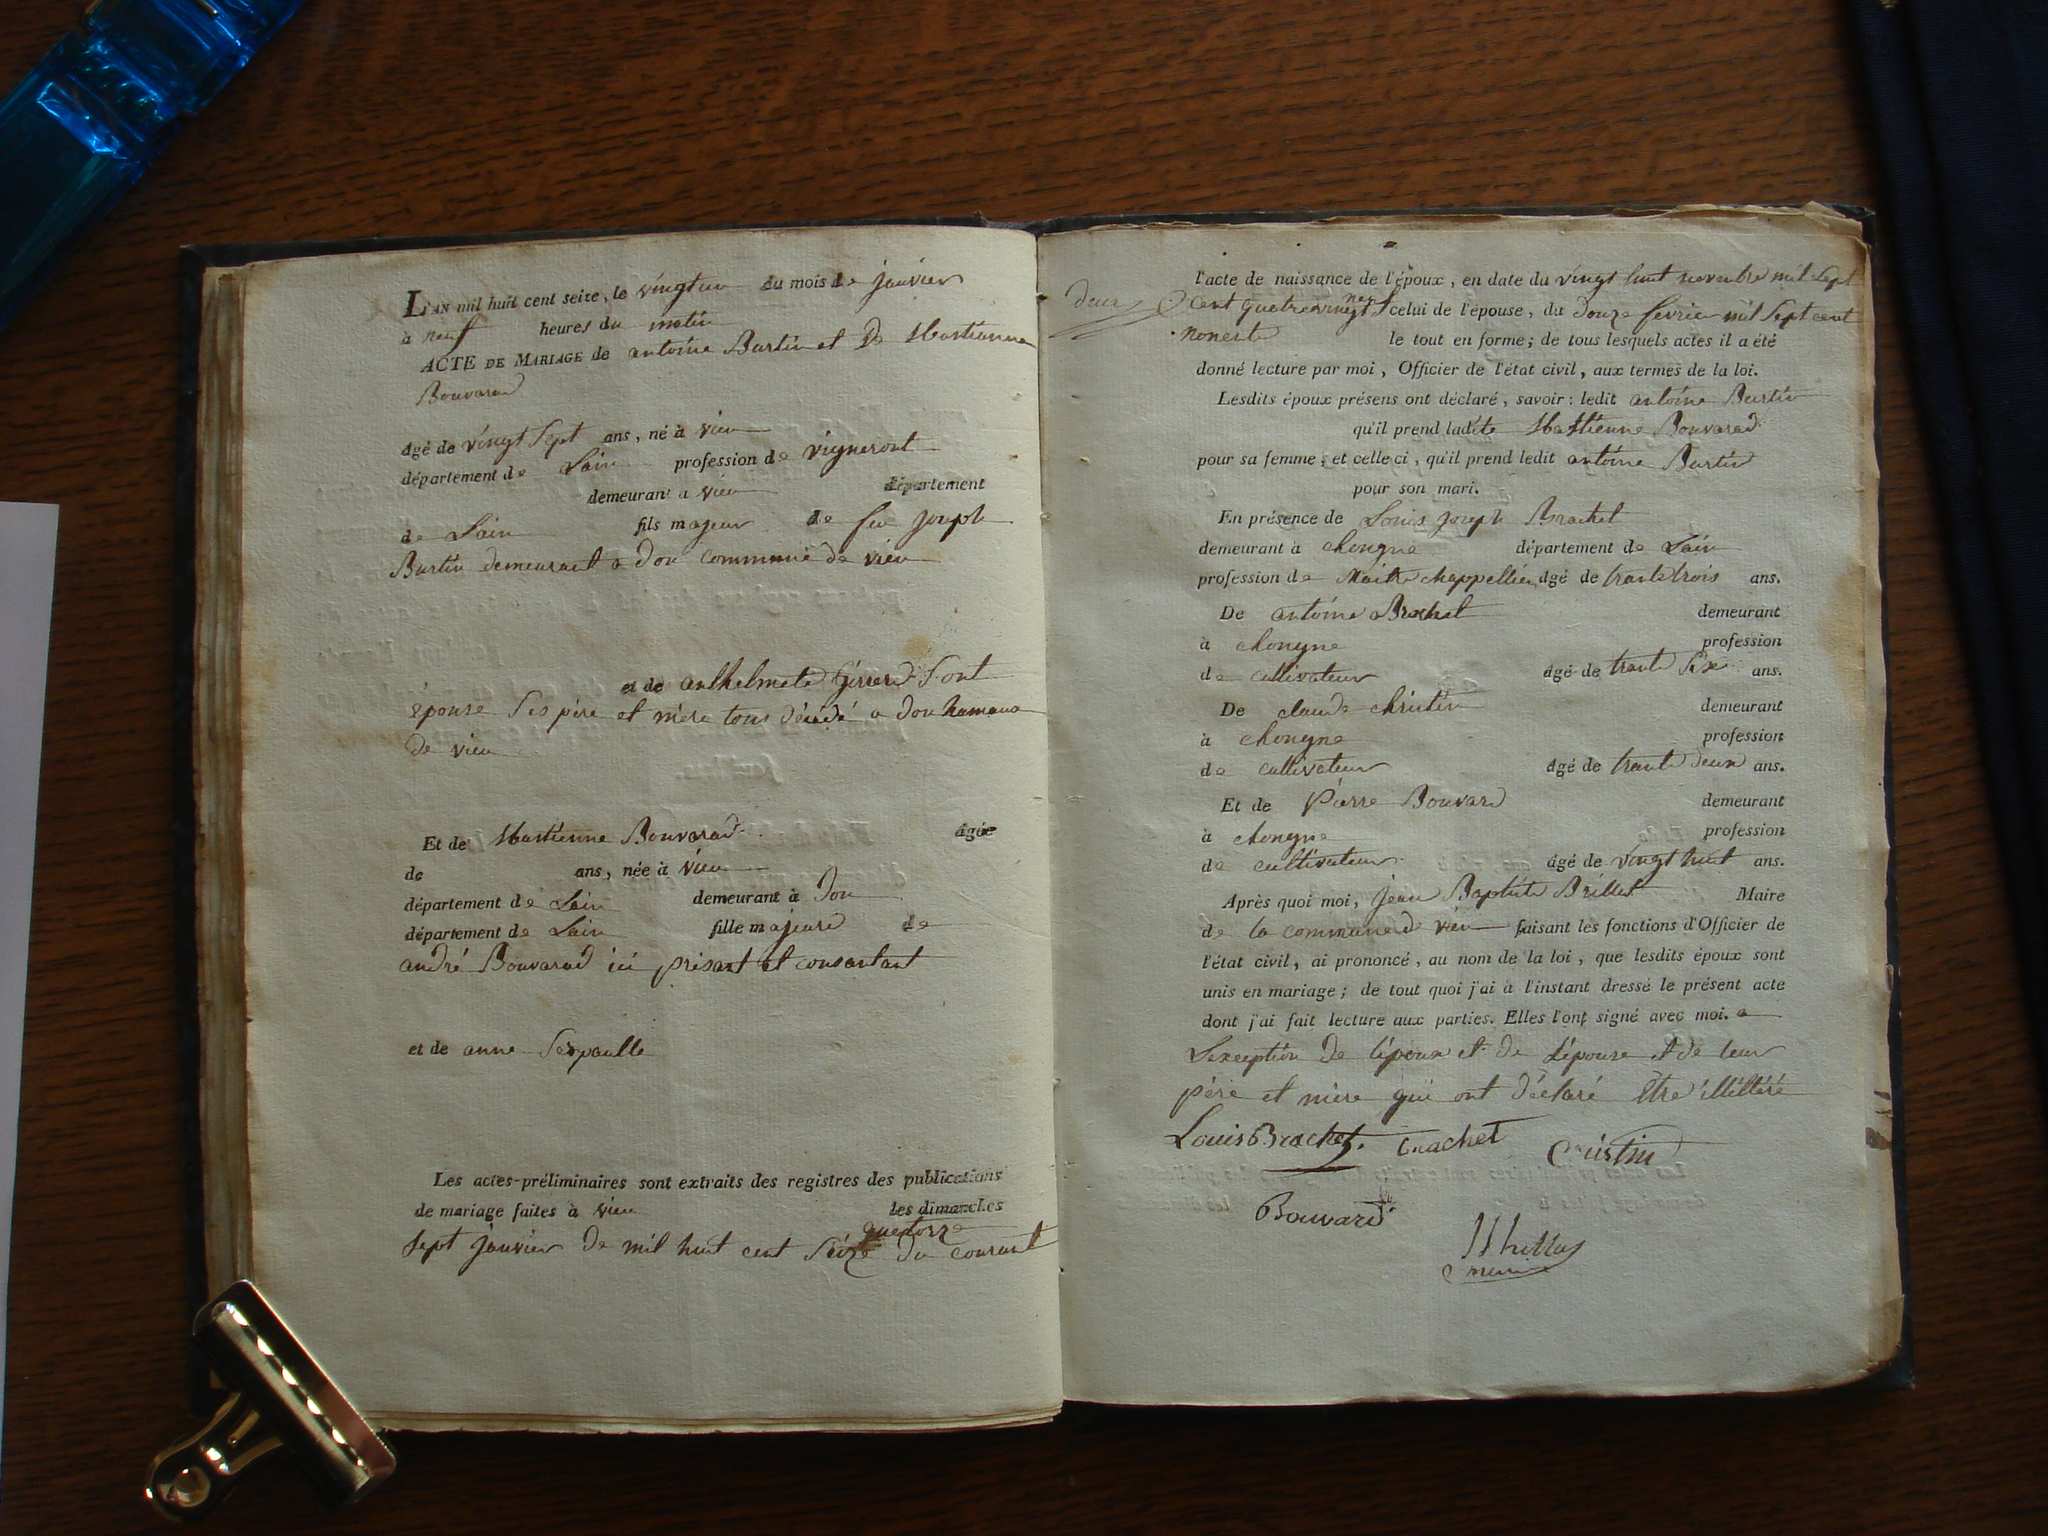 L'AN mil huit cent seize, le vingtun du mois de janvier
à neuf heures du matin
ACTE DE MARIAGE de antoine Burtin et D
Bouvarad
âgé de vingt sept ans, né à vieu
département de Lain profession de vigneront
demeurant a vieu département
de Lain fils majeur de feu joseph
Burtin demeurant a don commune de vieu
et de anthelmete Girrerd Sont
épouse Ses père et mère tous décédé a don hamaux
de vieu
Et de Bouvarad âgée
de ans, née à vieu
département de Lain demeurant à Don
département de Lain fille majeure de
andré Bouvarad ici présant et consantant
et de anne Serpaulle
Les actes-préliminaires sont extraits des registres des publications
de mariage faites à vieu les dimanches
quatorze
Sept janvier de mil huit cent Seize du courant
l'acte de naissance de l'époux, en date du vingt huit novembre mil Sept
cent quatrevingt celui de l'épouse, du douze fevrier mil Sept cent
nonente le tout en forme; de tous lesquels actes il a été
donné lecture par moi, Officier de l'état civil, aux termes de la loi.
Lesdits époux présens ont déclaré, savoir: ledit antoine Burtin
qu'il prend ladite Bouvarad
pour sa femme; et celle ci, qu'il prend ledit antoine Burtin
pour son mari.
En présence de Louis joseph Brachet
demeurant à chongne département de Lain
profession de Maitre chappellier âgé de trante trois ans.
De antoine Brachet demeurant
à chongne profession
de cultivateur âgé de trante Six ans.
De claude christin demeurant
à chongne profession
de cultivateur âgé de trante deux ans.
Et de Pierre Bouvard demeurant
à chongne profession
de cultivateur âgé de vingt huit ans.
Après quoi moi, jean Baptiste Brillat Maire
de la commune de vieu faisant les fonctions d'Officier de
l'état civil, ai prononcé, au nom de la loi, que lesdits époux sont
unis en mariage; de tout quoi j'ai à l'instant dressé le présent acte
dont j'ai fait lecture aux parties. Elles l'ont signé avec moi. a
Lexeption de lépoux et de Lépouse et de leur
père et mère qui ont déclaré être illittéré
Louis Brachet. Brachet Cristin
Bouvard